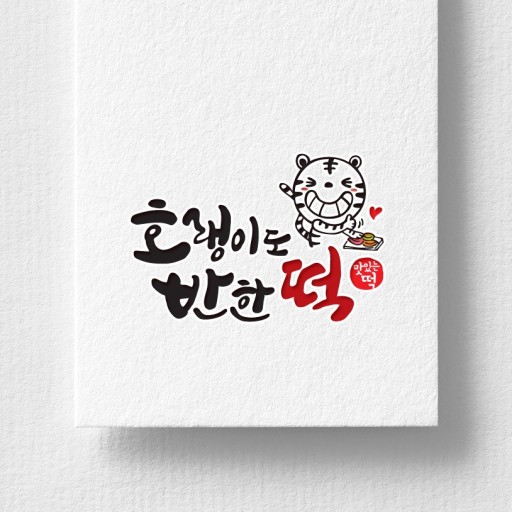 호랭이도
반한 떡
맛있는
떡